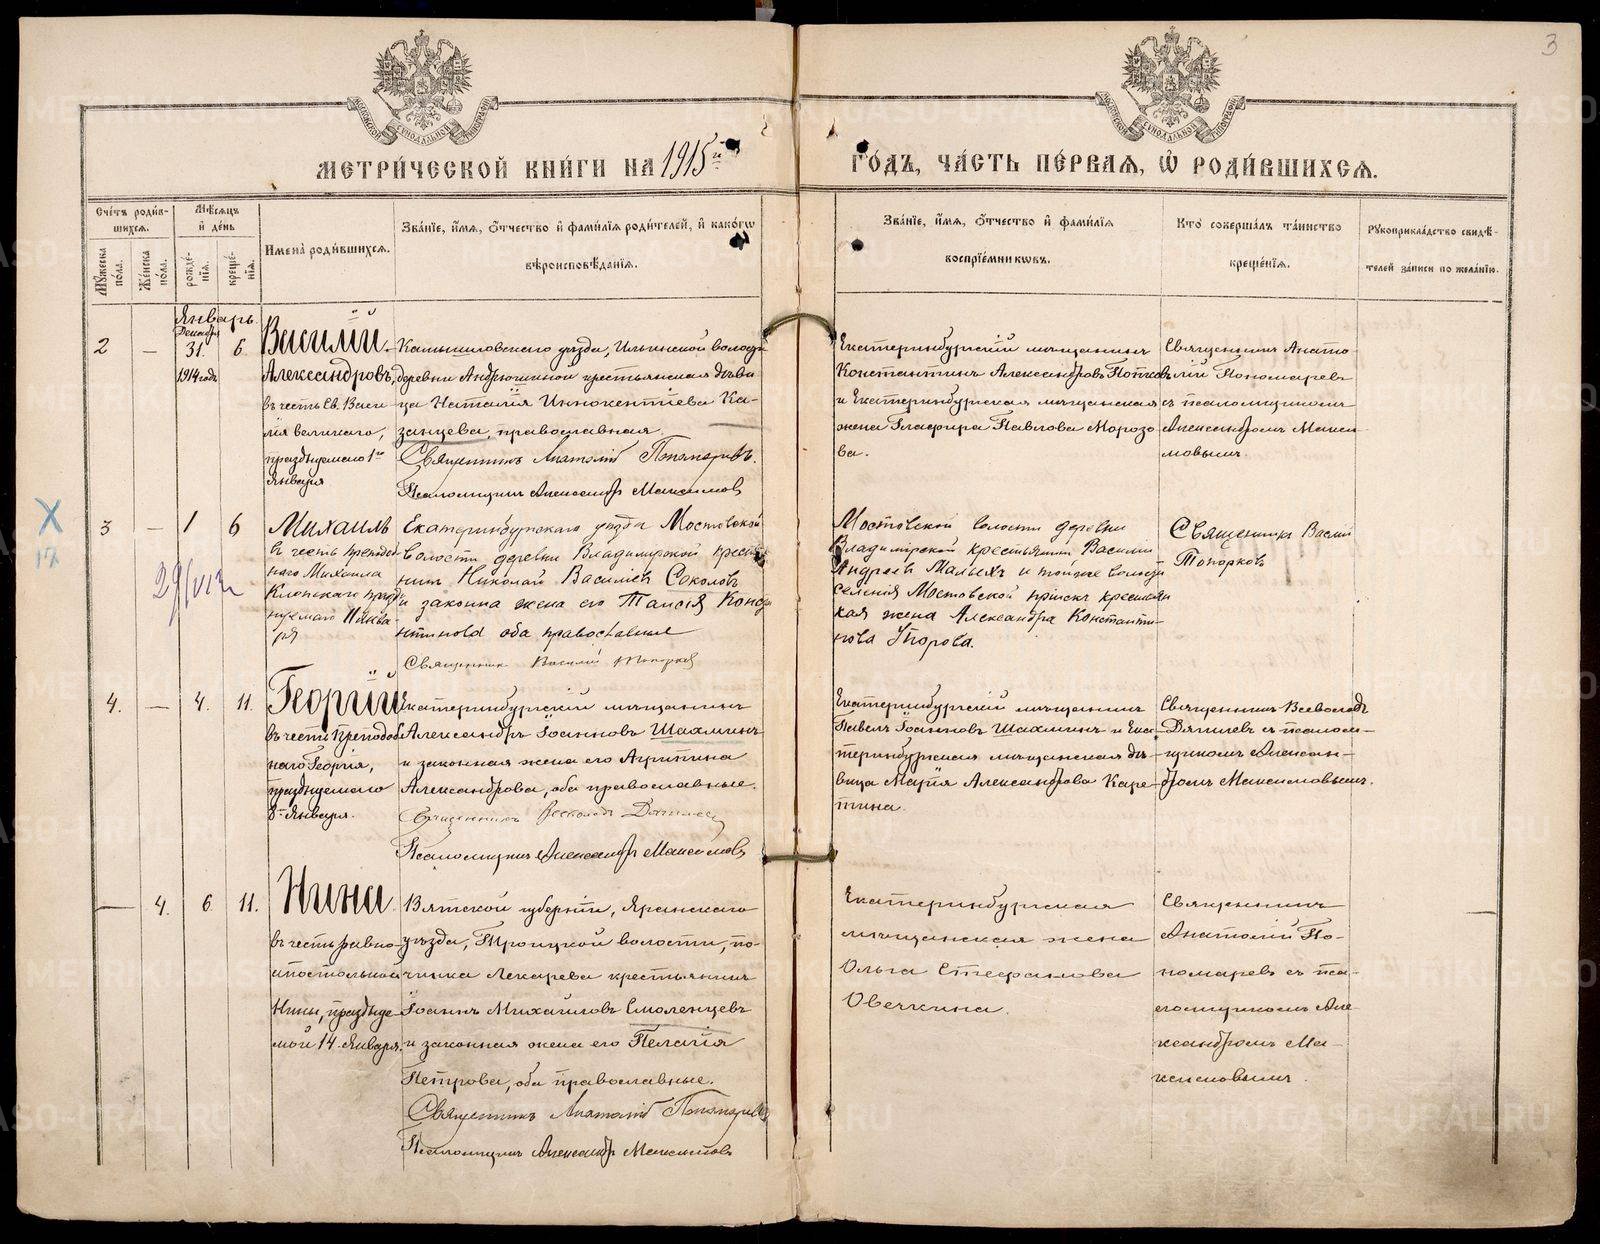 3
МОСКОВСКОЙ СУНОДАЛЬНОЙ ТИПОГРАФІИ
МОСКОВСКОЙ СУНОДАЛЬНОЙ ТИПОГРАФІИ
МЕТРИ́ЧЕСКОЙ КНИ́ГИ НА 1915й
ГО́ДЪ, ЧА́СТЬ ПЕ́РВАЯ, Ѡ҆ РОДИ́ВШИХСЯ.
Сче́тъ роди́в-
шихся.
Мѣ́сяцъ
и҆ де́нь
Му́жеска
по́ла.
Же́нска
по́ла.
рожде́-
нїя.
креще́-
нїя.
Имена̀ роди́вшихся.
Зва́нїе, и҆́мя, ѻ҆́тчество и҆ фами́лїя роди́телей, и҆ како́гѡ
вѣроисповѣ́данїя.
Зва́нїе, и҆́мя, ѻ҆́тчество и҆ фами́лїя
воспрїе́мниковъ.
Кто̀ соверша́лъ та́инство
креще́нїя.
Рукоприкла́дство свидѣ́-
телей за́писи по жела́нїю.
Январь.
2
—
Декабря
31.
1914 года
6.
Василій
Александровъ,
въ честь Св. Васи
лія великаго,
празднуемаго 1го
Января
Камышловскаго уѣзда, Ильинской волости
деревни Андрюшиной крестьянская дѣви
ца Наталія Иннокентіева Ка-
занцева, православная.
Священникъ Анатолій Пономаревъ.
Псаломщикъ Александръ Максимовъ
Екатеринбургскій мѣщанинъ
Константинъ Александровъ Потков
и Екатеринбургская мѣщанская
жена Глафира Павлова Морозо
ва.
Священникъ Анато-
лій Пономаревъ
съ псаломщикомъ
Александромъ Макси
мовымъ.
Х
17
3
—
1
6
29/VIII
Михаилъ
въ честь преподоб
наго Михаила
Клопскаго праздн
нуемаго 11 Янва
ря
Екатеринбургскаго уѣзда Мостовской
волости деревни Владимірской кресть
нинъ Николай Василіевъ Соколовъ
и законна жена его Таисія Конста
нтинова оба православные
Священникъ Василій Топорковъ
Мостовской волости деревни
Владимірской крестьянинъ Василій
Андреевъ Малыхъ и той же волости
селенія Мостовской пріискъ крестьянс
кая жена Александра Константи-
нова Упорова.
Священникъ Василій
Топорковъ
4.
—
4.
11.
Георгій
въ честь Преподоб
наго Георгія,
празднуемаго
8го Января.
Екатеринбургскій мѣщанинъ
Александръ Іоанновъ Шахминъ
и законная жена его Агрипина
Александрова, оба православные.
Священникъ Всеволодъ
Псаломщикъ Александръ Максимовъ
Екатеринбургскій мѣщанинъ
Павелъ Іоанновъ Шахминъ и Ека
теринбургская мѣщанская дѣ-
вица Марія Александрова Каре-
тина.
Священникъ Всеволодъ
съ псалом-
щикомъ Алексан-
дромъ Максимовымъ.
—
4.
6.
11.
Нина
въ честь равно-
апостольной
Нины, праздуе-
мой 14 Января.
Вятской губерніи, Яранскаго
уѣзда, Троицкой волости, по-
чинка Лекарева крестьянинъ
Іоаннъ Михаиловъ Смоленцевъ
и законная жена его Пелагія
Петрова, оба православные.
Священникъ Анатолій Пономаревъ
Псаломщикъ Александръ Максимовъ
Екатеринбургская
мѣщанская жена
Ольга Стефанова
Овечкина.
Священникъ
Анатолій По-
номаревъ съ пса-
ломщикомъ Але
ксандромъ Ма-
ксимовымъ.
METRIKI.GASO-URAL.RU